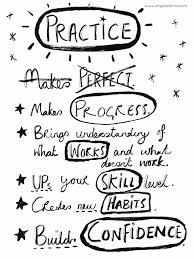 PRACTICE
Makes PERFECT
Makes PROGRESS.
Brings understanding of
what WORKS and what
doesn't work.
UPs your SKILL level.
Creates new HABITS.
Builds CONFIDENCE